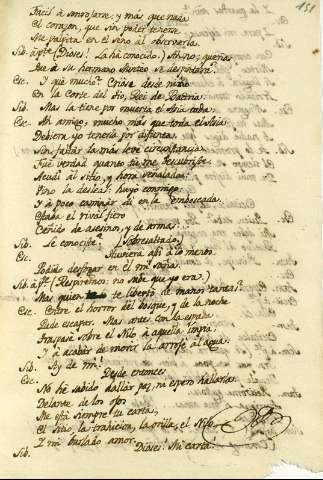 151
Facil à sonrojarse: y más que nada
El corazon, que sin poder tenerse
Me palpita en el seno al observarla.
Sib. ap.te (Dioses! La há conocido.) Ah no; querias
Que de su hermano
Esc. Y què mucho? Criòse desde niño
En la Corte del tio, Rei de
Sib. Mas la tiene por muerta el
Esc. Ah amigo, mucho mas que toda el Asia
Debiera yo tenerla por difunta.
Sin faltar la más leve circunstancia
Fuè verdad quanto tu me descubriste
Acudì al sitio, y hora señalada:
Vino la desleal: huyò conmigo:
Y à poco caminar dì en la emboscada.
el rival fiero
Ceñido de asesinos, y de armas.
Sib. Le conociste? (Sobresaltado)
Esc. Huviera ahì à lo menos
Podido desfogar en el mi saña.
Sib. ap.te (Respiremos: no sabe que yo era.)
Mas quien te libertò de manos tantas?
Esc. Entre el horror del bosque, y de la noche
Pude escapar. Mas antes con la espada
Traspasè sobre el Nilo à aquella impia.
Y à acabar de morir la arrojè al agua.
Sib. Ay de mi!
Esc. Desde entonces
No hè sabido hallar paz, ni espero hallarla.
Delante de los ojos
Me està siempre tu carta,
El sitio, la traicion, la orilla, el Nilo,
Y mi burlado amor.
Sib. Dioses! Mi carta.